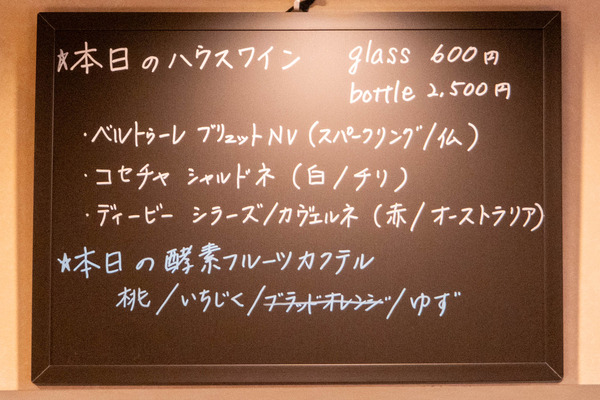 ☆本日のハウスワイン glass 600円
bottle 2,500円
・ベルトゥーレ ブリュットNV (スパークリング/仏)
・コセチャ シャルドネ (白/チリ)
・ディービー シラーズ/カヴェルネ (赤/オーストラリア)
☆本日の酵素フルーツカクテル
桃/いちじく/ブラッドオレンジ/ゆず